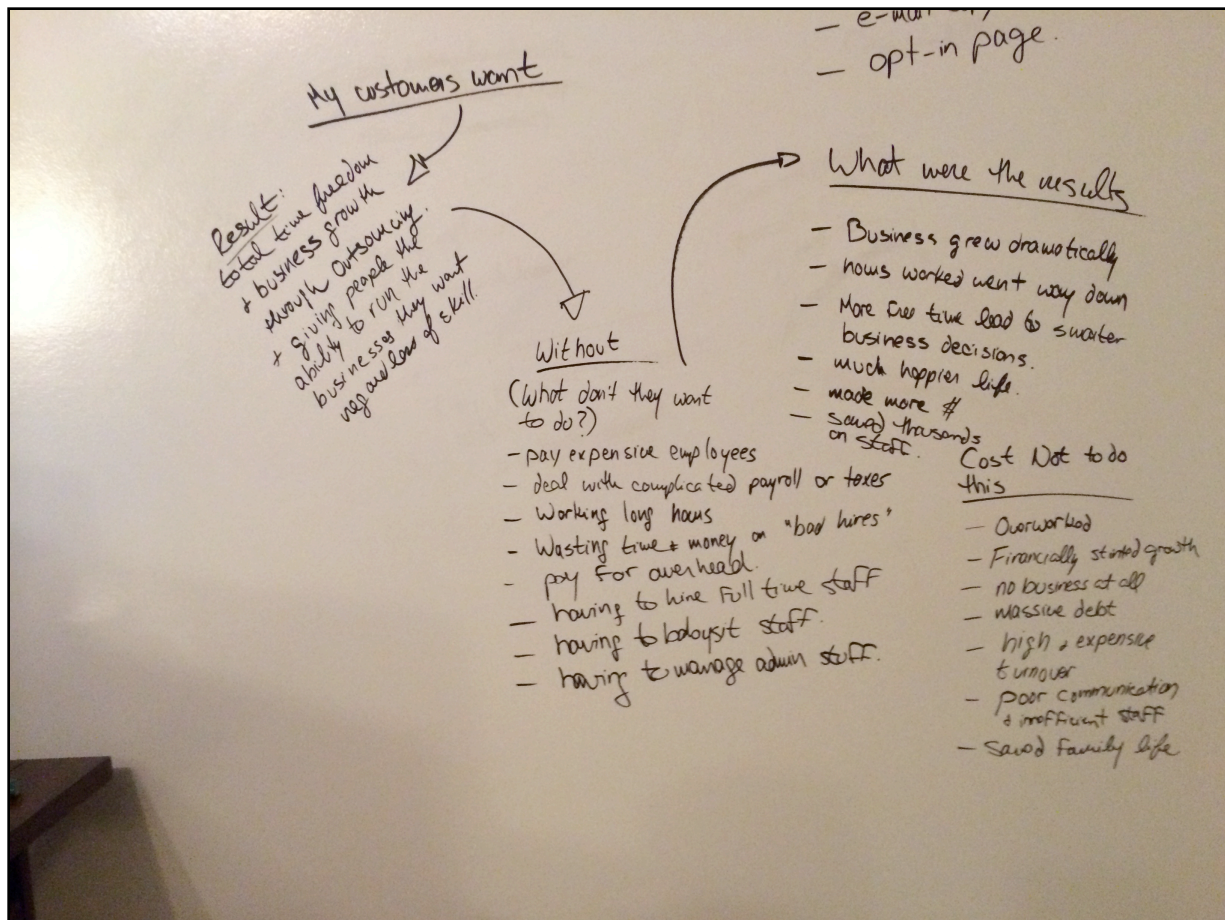 — e-mail
— opt-in page.
My customers want
Result:
total time freedom
+ business growth
through outsourcing.
+ giving people the
ability to run the
businesses they want
regardless of skill.
Without
(What don't they want
to do?)
- pay expensive employees
- deal with complicated payroll or taxes
- Working long hours
- Wasting time + money on "bad hires"
- pay for overhead.
- having to hire full time staff
- having to babysit staff.
- having to manage admin stuff.
What were the results
- Business grew dramatically
- hours worked went way down
- More free time lead to smarter
business decisions.
- much happier life.
- made more $
- saved thousands
on staff.
Cost Not to do
this
- Overworked
- Financially stunted growth
- no business at all
- massive debt
- high + expensive
turnover
- poor communication
+ inefficient staff
- saved family life